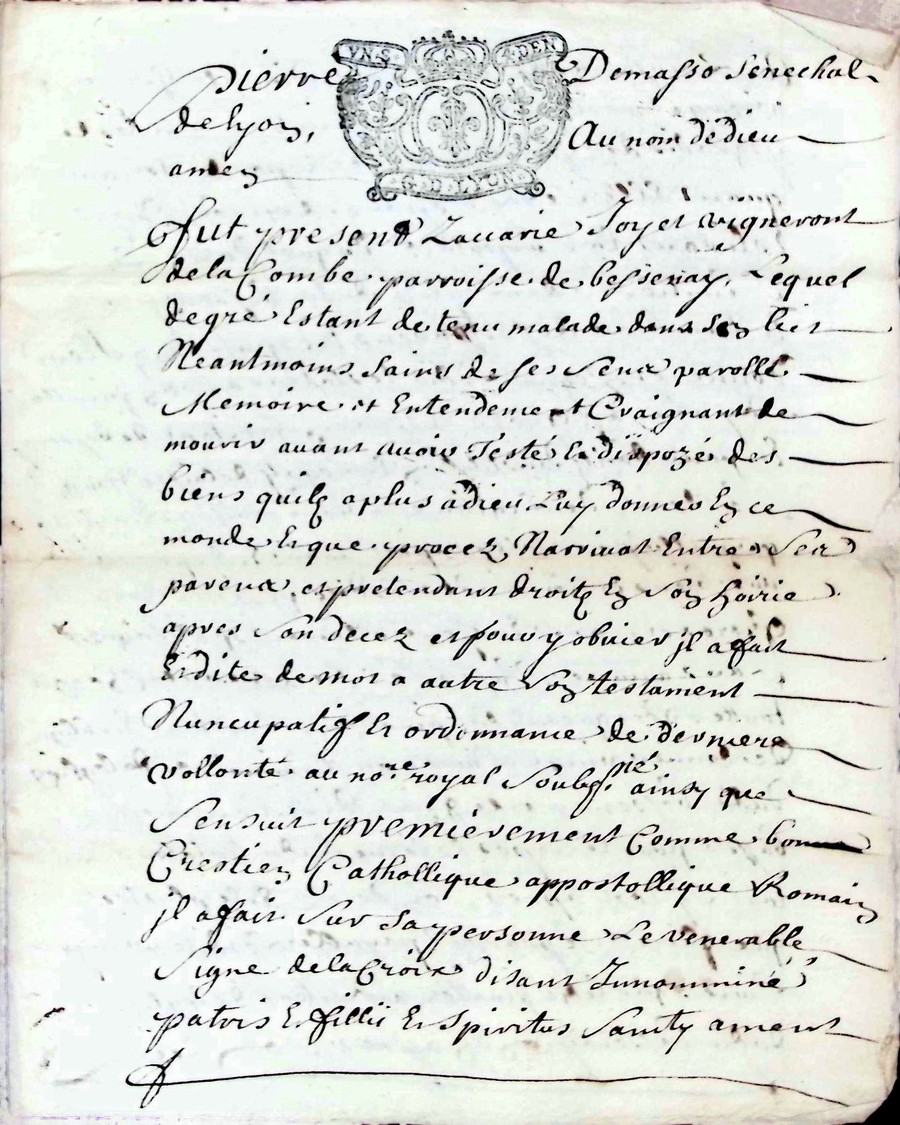 VN S. 4 DEN
G. DE LYON
pierre Demasso Senechal
de lyon, Au nom de dieu
amen
fut present Zacarie Joyet vigneront
de la Combe parroisse de bessenay, Lequel
de gré Estant detenu malade dans son lict
Neantmoins sains de ses Sens parolle
Memoire et Entendement Craignant de
mourir avant avoir Testé Et dispozé des
biens quil a plus à dieu Luy donner En ce
monde Et que procez Narrivat Entre Ses
parens et pretendant droitz En Son hoirie
apres Son decez et pour y obvier jl a fait
Et dite de mot a autre Son testament
Nuncupatif Et ordonnance de derniere
vollonté au nore royal Soubs.sié ainsy que
Sensuit premiérement Comme bon
Crestien Catholliique appostollique Romain
jl a fait Sur Sa personne Le venerable
Signe de la Croix disant Innomminé
patris Et fillii Et Spiritus Santy ament